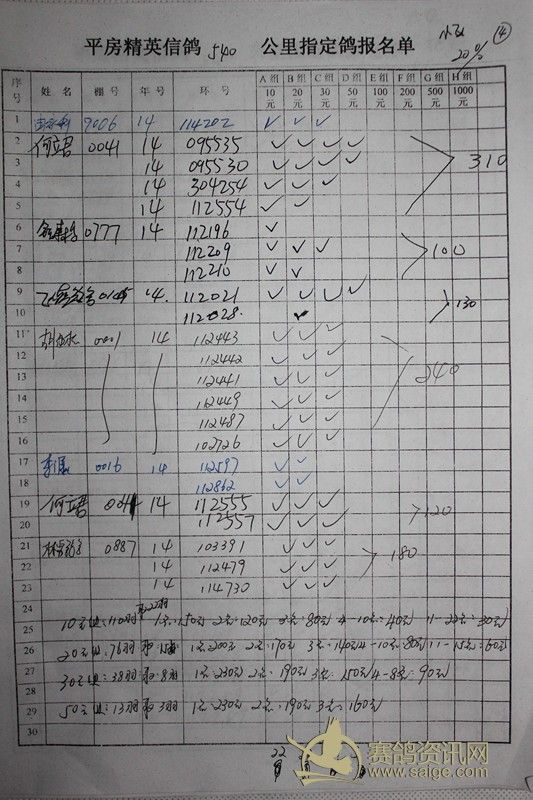 平房精英信鸽 540 公里指定鸽报名单
20%
④
序号 姓名 棚号 年号 环号 A组10元 B组20元 C组30元 D组50元 E组100元 F组200元 G组500元 H组1000元
1 9006 14 114202 ✓ ✓ ✓
2 何立君 0041 14 095535 ✓ ✓ ✓ ✓
3 14 095530 ✓ ✓ ✓ ✓ 310
4 14 304254 ✓ ✓ ✓
5 14 112554 ✓ ✓
6 0777 14 112196 ✓
7 112209 ✓ ✓ ✓ 100
8 112210 ✓ ✓
9 14 112021 ✓ ✓ ✓ ✓
10 112028 ✓ 130
11 0001 14 112443 ✓ ✓ ✓
12 112442 ✓ ✓ ✓
13 112441 ✓ ✓ ✓ 240
14 112449 ✓ ✓ ✓
15 112487 ✓ ✓ ✓
16 102726 ✓ ✓ ✓
17 0016 14 112597 ✓ ✓
18 112862 ✓ ✓
19 何立君 0041 14 112555 ✓ ✓ ✓
20 112557 ✓ ✓ ✓ 120
21 0887 14 103391 ✓ ✓ ✓
22 14 112479 ✓ ✓ ✓ 180
23 14 114730 ✓ ✓ ✓
24
25 10元组:110羽 取22羽 1名150元 2名120元 3名80元 4-10名40元 11-22名30元
26 20元组:76羽 取15羽 1名200元 2名170元 3名140元 4-10名80元 11-15名60元
27
28 30元组:38羽 取8羽 1名230元 2名190元 3名150元 4-8名90元
29 50元组:13羽 取3羽 1名230元 2名190元 3名160元
30
22
赛鸽资讯网
www.saige.com